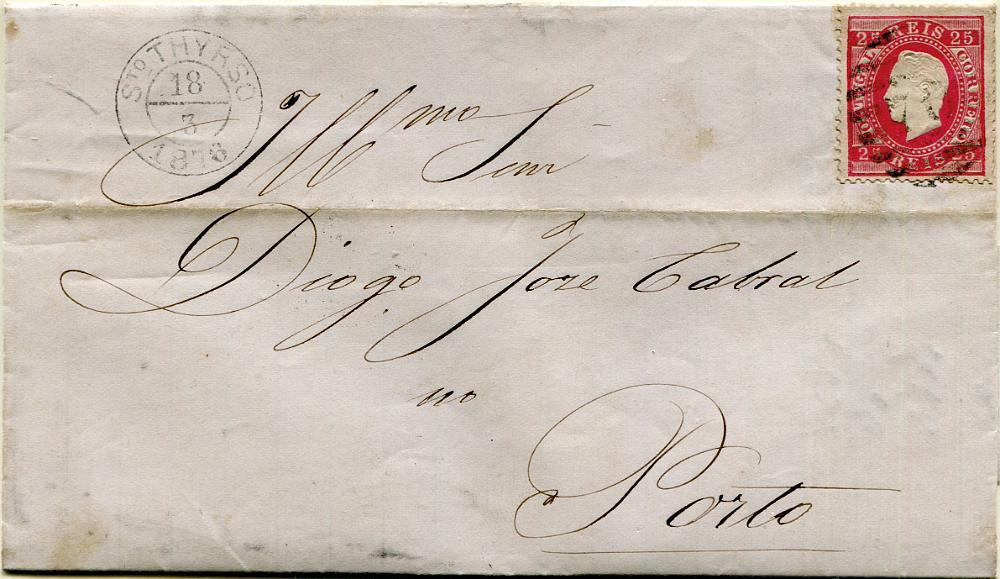 STO THYRSO
18
3
1876
25 REIS 25
PORTUGAL CORREIO
25 REIS 25
Illmo Senr
Diogo Joze Cabral
no
Porto